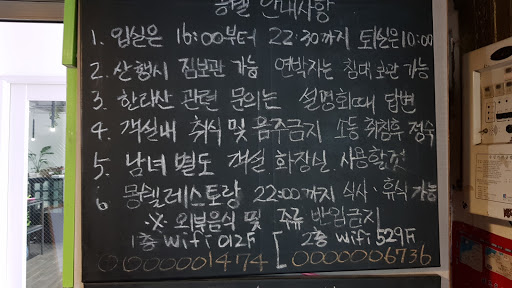 몽쉘 안내사항
1. 입실은 16:00부터 22:30까지 퇴실은 10:00
2. 산행시 짐보관 가능 연박자는 침대 보관 가능
3. 한라산 관련 문의는 설명회때 답변
4. 객실내 취식 및 음주금지 소등 취침후 정숙
5. 남녀 별도 객실. 화장실. 사용할것
6 몽쉘레스토랑 22:00까지 식사·휴식 가능
※ 외부음식 및 주류 반입금지
1층 Wifi 012F [ 2층 Wifi 529F
0000001474 [ 0000006736